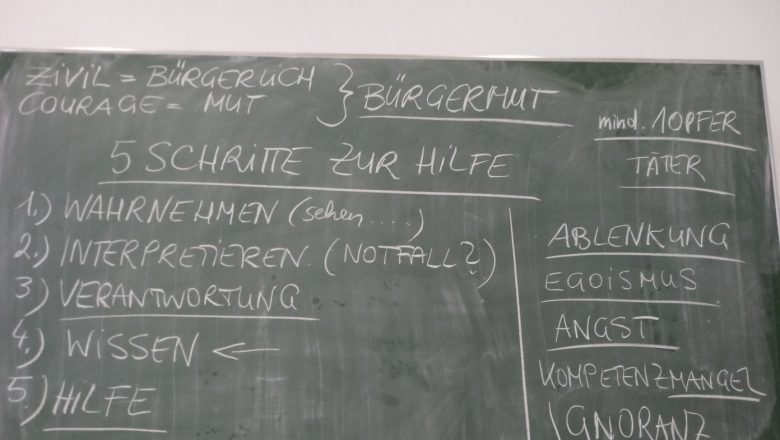 ZIVIL = BÜRGERLICH
COURAGE = MUT
} BÜRGERMUT
5 SCHRITTE ZUR HILFE
1.) WAHRNEHMEN (sehen ....)
2.) INTERPRETIEREN (NOTFALL?)
3) VERANTWORTUNG
4.) WISSEN ←
5.) HILFE
mind. 1 OPFER
TÄTER
ABLENKUNG
EGOISMUS
ANGST
KOMPETENZMANGEL
IGNORANZ